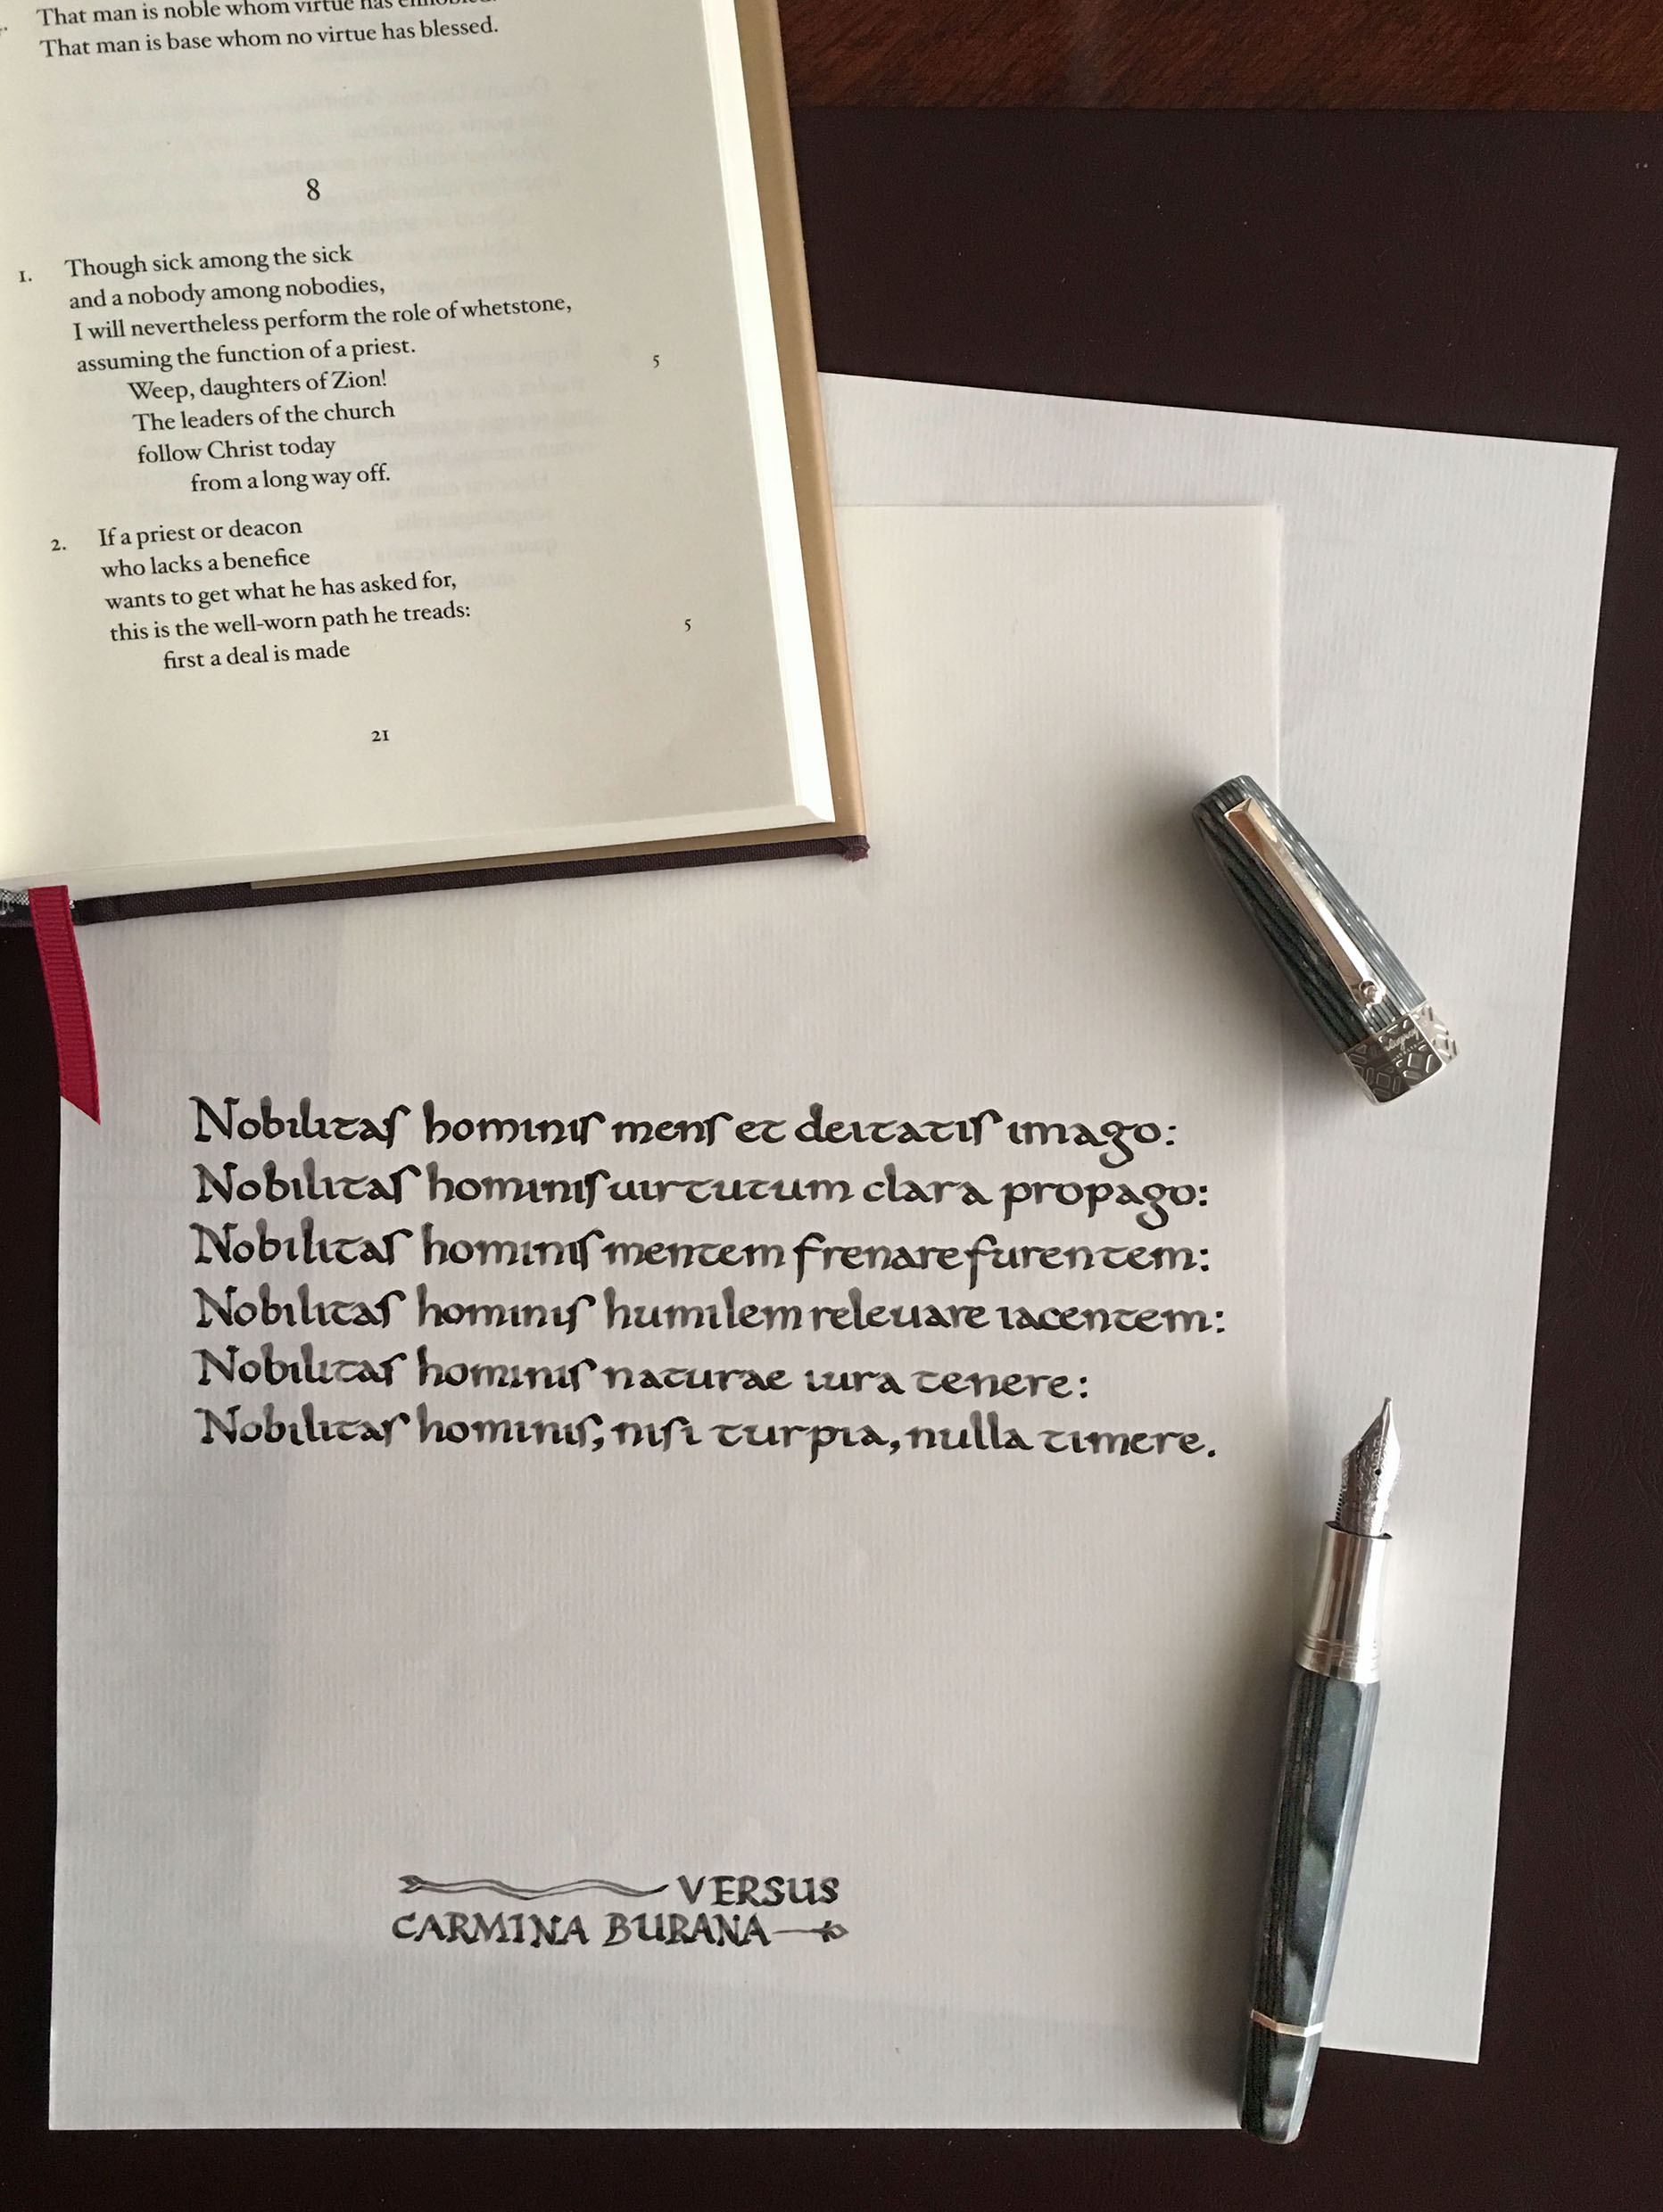 That man is noble whom virtue has ennobled.
That man is base whom no virtue has blessed.
8
1. Though sick among the sick
and a nobody among nobodies,
I will nevertheless perform the role of whetstone,
assuming the function of a priest.
Weep, daughters of Zion! 5
The leaders of the church
follow Christ today
from a long way off.
2. If a priest or deacon
who lacks a benefice
wants to get what he has asked for,
this is the well-worn path he treads:
first a deal is made 5
21
Nobilitaſ hominiſ menſ et deitatiſ imago:
Nobilitaſ hominiſ uirtutum clara propago:
Nobilitaſ hominiſ mentem frenare furentem:
Nobilitaſ hominiſ humilem releuare iacentem:
Nobilitaſ hominiſ naturae iura tenere:
Nobilitaſ hominiſ, niſi turpia, nulla timere.
VERSUS
CARMINA BURANA